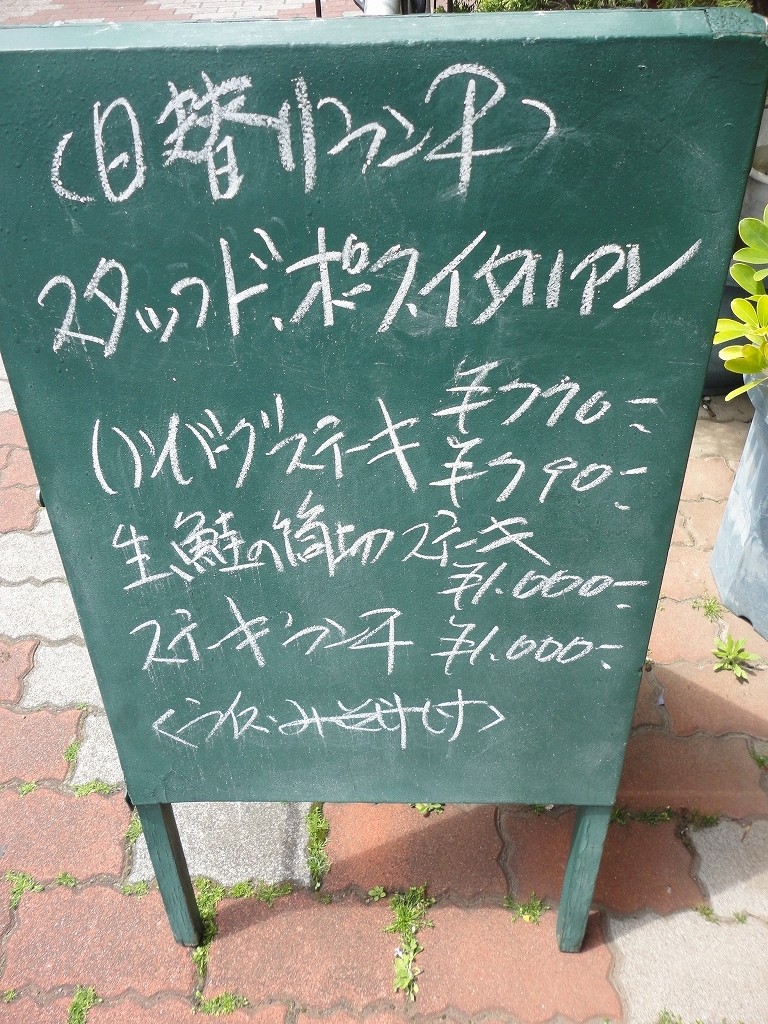 (日替りランチ)
スタッフド.ポーク.イタリアン
¥770-
ハンバーグステーキ ¥790-
生鮭の筒切ステーキ
¥1.000-
ステーキランチ ¥1.000-
<ライス.みそ汁付>